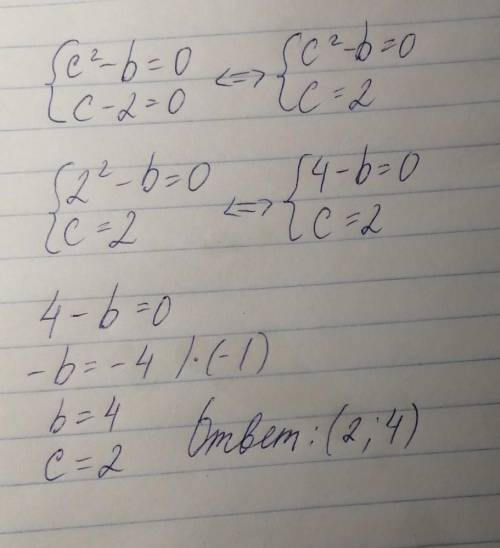 {c²-b=0 <=> {c²-b=0
{c-2=0 {c=2
{2²-b=0 <=> {4-b=0
{c=2 {c=2
4-b=0
-b=-4 |·(-1)
b=4
c=2 Ответ: (2;4)